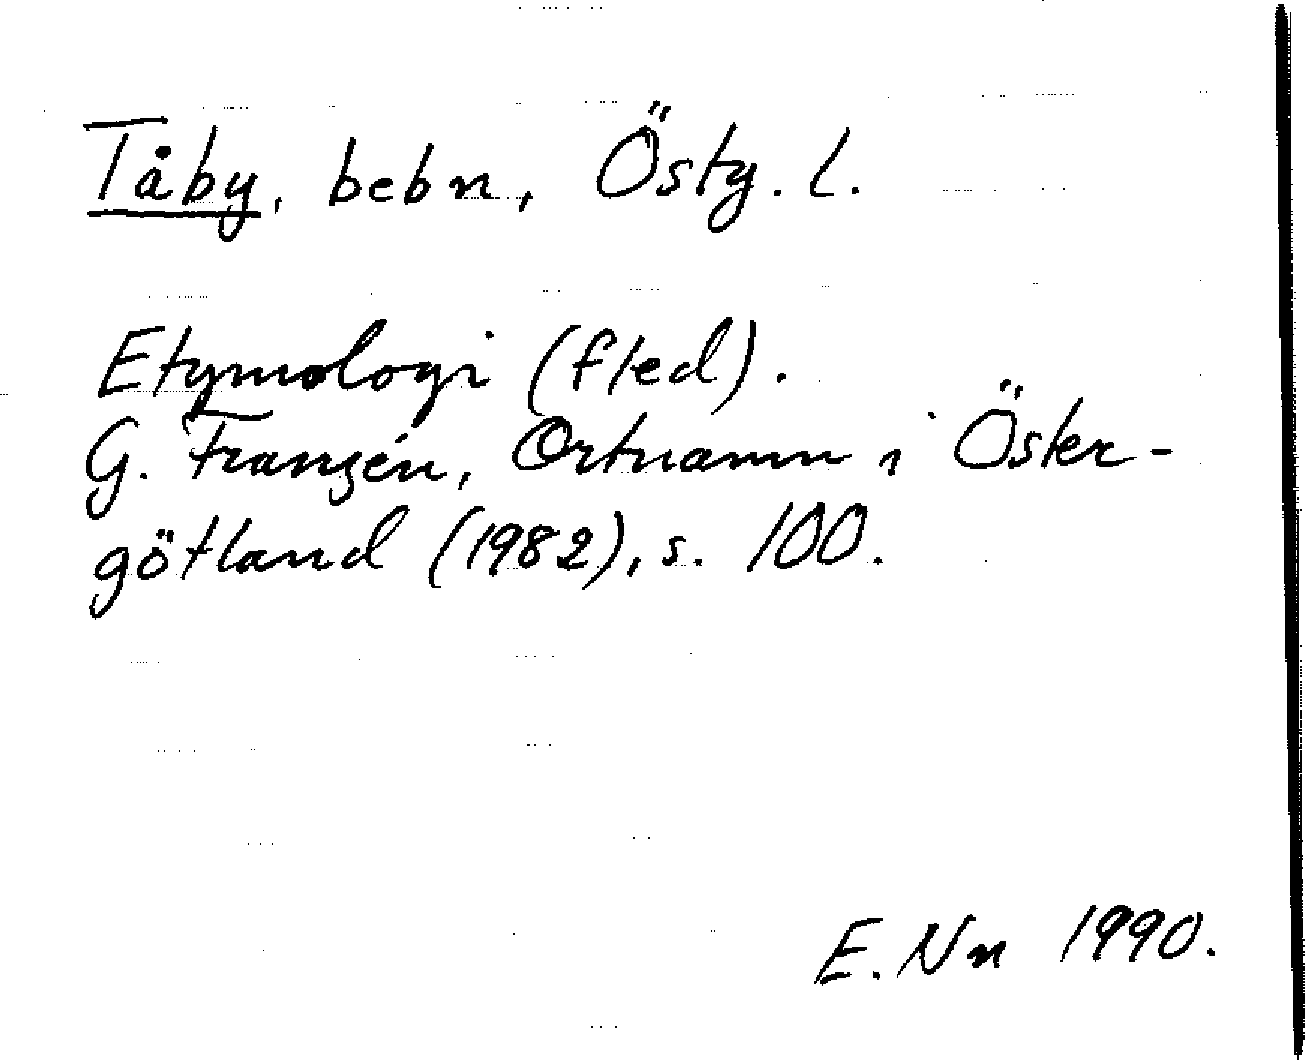 Tåby, bebn, Östg. l.
Etymologi (fled).
G. Franzén, Ortnamn i Öster-
götland (1982), s. 100.
E. Nn 1990.